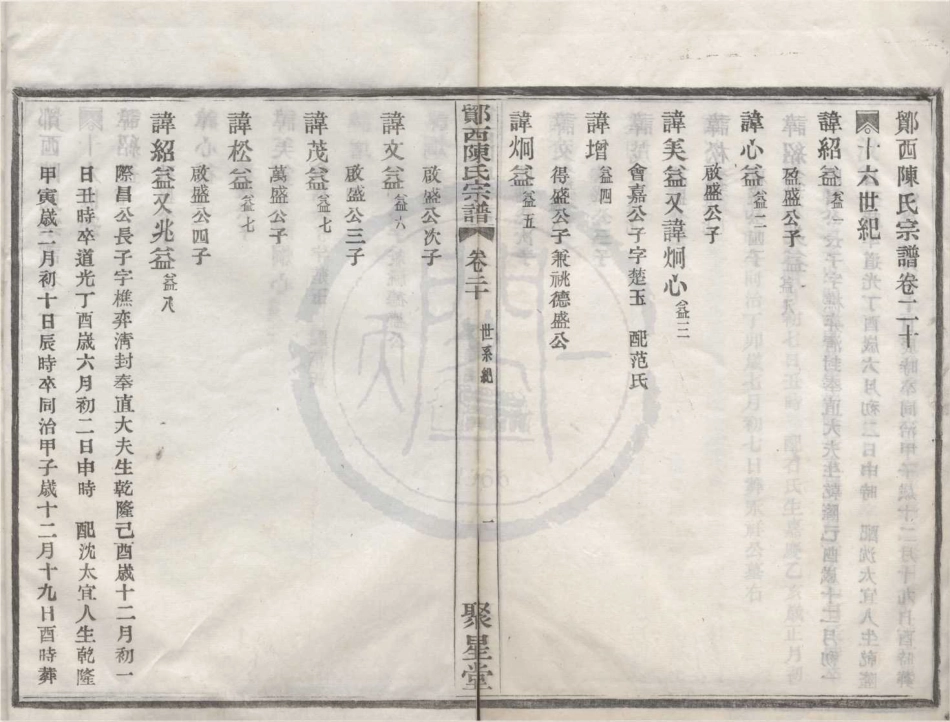 鄮西陳氏宗譜卷二十
十六世紀
諱紹益 益一
盈盛公子
諱心益 益二
啟盛公子
諱美益又諱炯心 益三
會嘉公子字楚玉 配范氏
諱增 益四
得盛公子兼祧德盛公
諱炯益 益五
啟盛公次子
鄮西陳氏宗譜 卷二十 世系紀 一 聚星堂
諱文益 益六
啟盛公三子
諱茂益 益七
萬盛公子
諱松益 益七
啟盛公四子
諱紹益又兆益 益八
際昌公長子字樵弈清封奉直大夫生乾隆己酉歲十二月初一
日丑時卒道光丁酉歲六月初二日申時 配沈太宜人生乾隆
甲寅歲二月初十日辰時卒同治甲子歲十二月十九日酉時葬